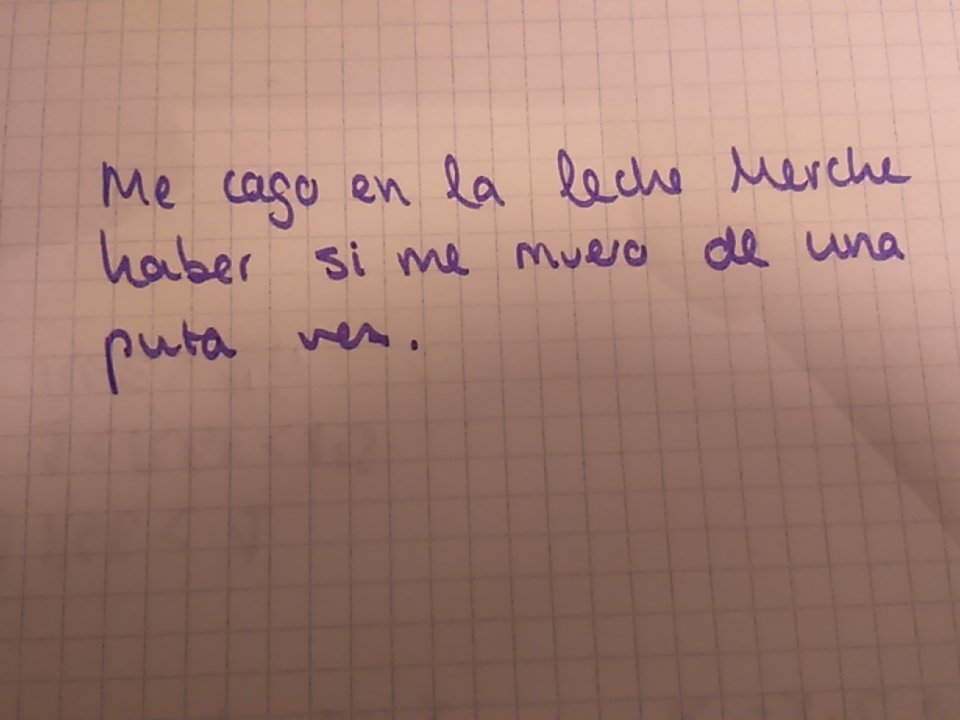 Me cago en la leche Merche
haber si me muero de una
puta vez.